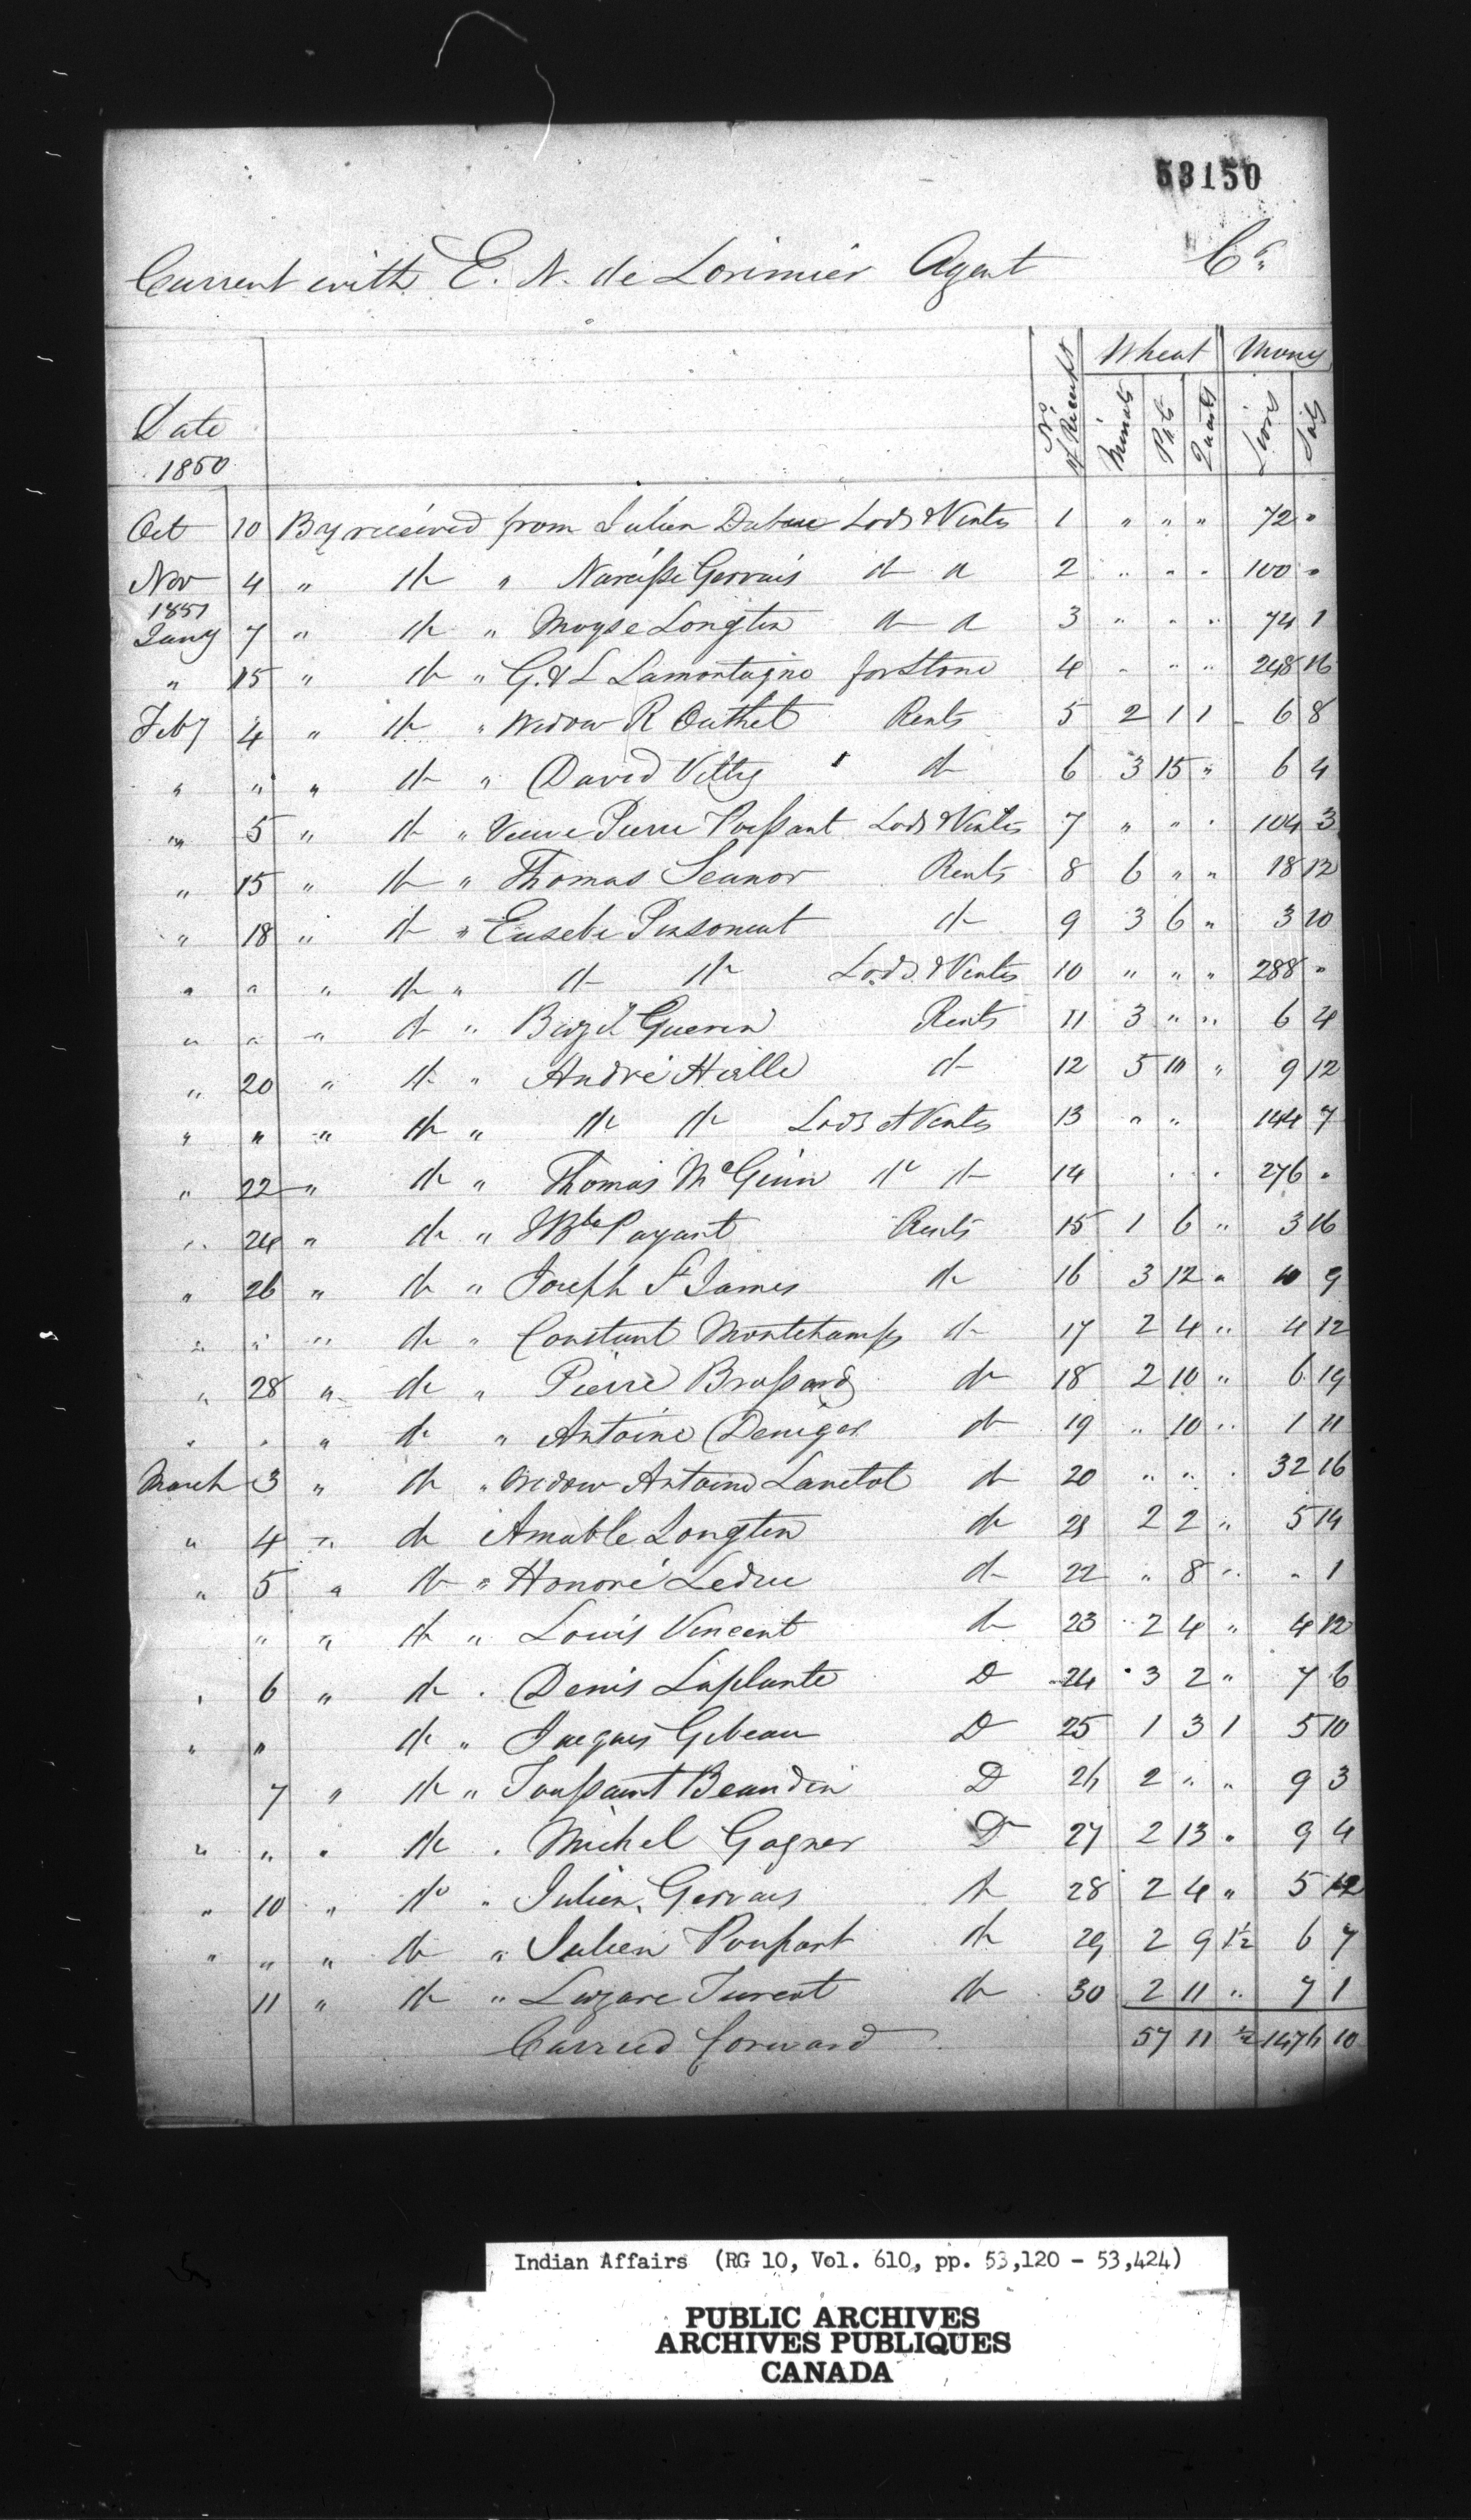 53150
Current with E. N. de Lorimier Agent Cr
Wheat Money
Date No of Receipts Minots Pts Quarts Livres Sols
1850
Oct 10 By received from Julien Lods & Ventes 1 " " " 72 "
Nov 4 " do " Narcisse Gervais do do 2 " " " 100 "
1851
Jany 7 " do " Moyse Longtin do do 3 " " " 74 1
" 15 " do " G. & L Lamontagne for Stone 4 " " " 248 16
Feby 4 " do " Widow R Outhet Rents 5 2 1 1 6 8
" " " do " David Vitty do 6 3 15 " 6 4
" 5 " do " Veuve Pierre Poissant Lods & Ventes 7 " " " 104 3
" 15 " do " Thomas Rents 8 6 " " 18 12
" 18 " do " Eusebe Pinsonneut do 9 3 6 " 3 20
" " " do " do do Lods & Ventes 10 " " " 288 "
" " " do " Bazil Guerin Rents 11 3 " " 6 4
" 20 " do " André do 12 5 10 " 9 12
" " " do " do do Lods et Ventes 13 " " 144 7
" 22 " do " Thomas McGinn do do 14 " " 276 "
" 24 " do " JBte Payant Rents 15 1 6 " 3 16
" 26 " do " Joseph St James do 16 3 12 " 10 9
" " " do " Constant Montchamps do 17 2 4 " 4 12
" 28 " do " Pierre Brossard do 18 2 10 " 6 19
" " " do " Antoine Deniger do 19 " 10 " 1 11
March 3 " do " Widow Antoine Lanctot do 20 " " " 32 16
" 4 " do Amable Longtin do 21 2 2 " 5 14
" 5 " do " Honoré Leduc do 22 " 8 " " 1
" " do " Louis Vincent do 23 2 4 " 4 12
" 6 " do " Denis Laplante D 24 3 2 " 7 6
" " do " Jacques Gibeau D 25 1 3 1 5 10
7 " do " Toussaint Beaudin D 26 2 " " 9 3
" " " do " Michel Gagner D 27 2 13 " 9 4
" 10 " do " Julien Gervais do 28 2 4 " 5 12
" " " do " Julien Poupart do 29 2 9 1½ 6 7
11 " do " Lazare Turcot do 30 2 11 " 7 1
Carried forward 57 11 ½ 1476 10
Indian Affairs (RG 10, Vol. 610, pp. 53,120 - 53,424)
PUBLIC ARCHIVES
ARCHIVES PUBLIQUES
CANADA